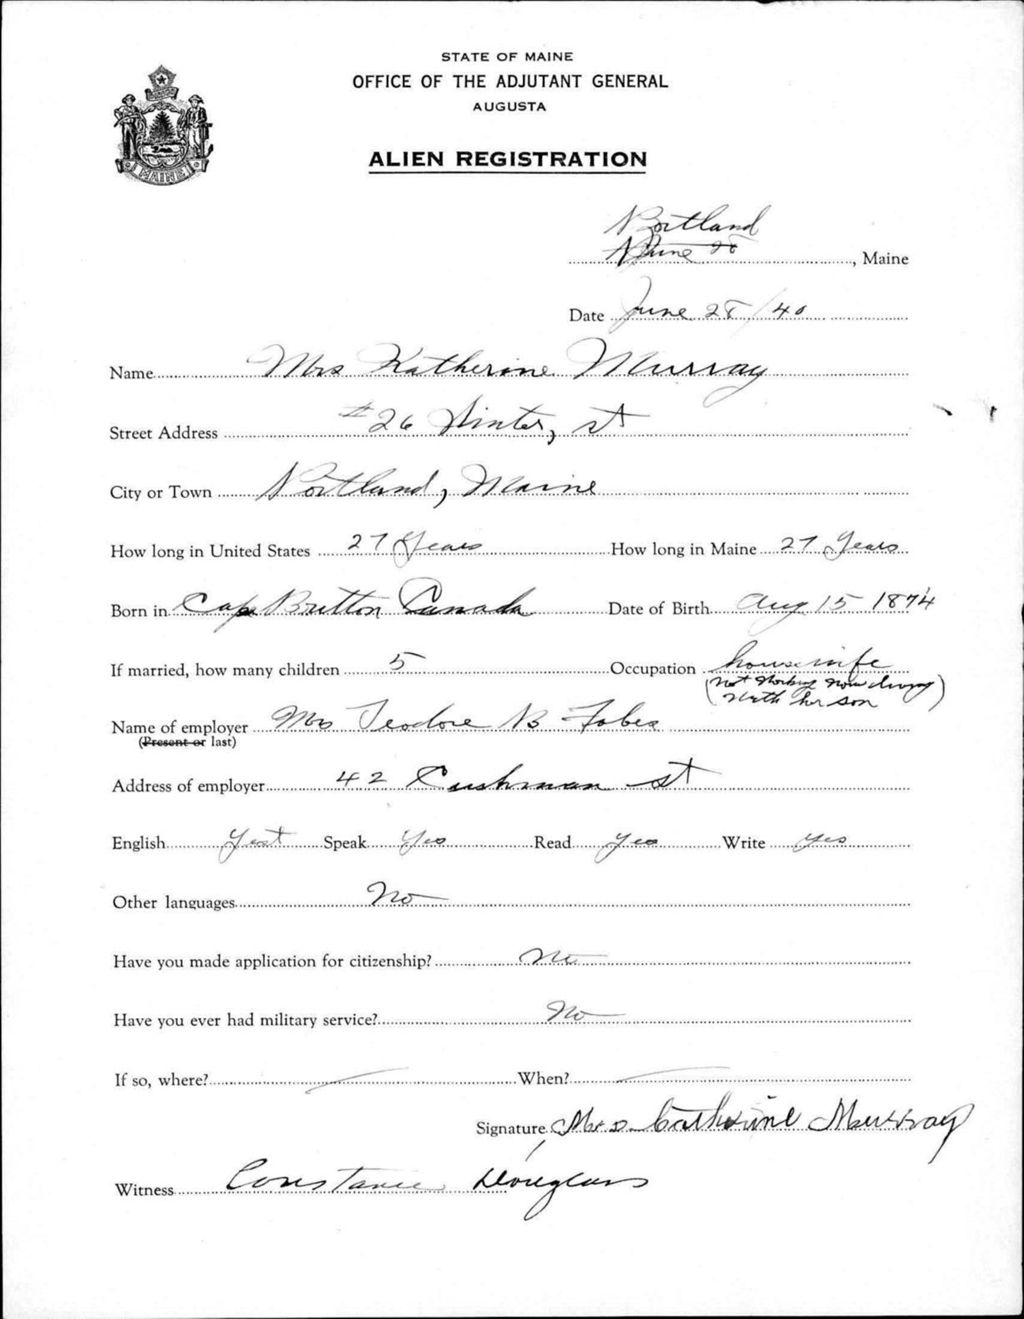 STATE OF MAINE
OFFICE OF THE ADJUTANT GENERAL
AUGUSTA
MAINE
ALIEN REGISTRATION
Portland
June 28, Maine
Date June 28/40
Name Mrs Katherine Murray
Street Address #26 Winter, st
City or Town Portland, Maine
How long in United States 27 Years How long in Maine 27 Years
Born in Cape Britton Canada Date of Birth Aug 15 1874
If married, how many children 5 Occupation housewife
(not working now living
with her son)
Name of employer Mrs Teodore B Fobes
(Present or last)
Address of employer 42 Cushman st
English Yest Speak Yes Read Yes Write Yes
Other languages No
Have you made application for citizenship? No
Have you ever had military service? No
If so, where? When?
Signature Mrs Catherine Murray
Witness Constance Douglass